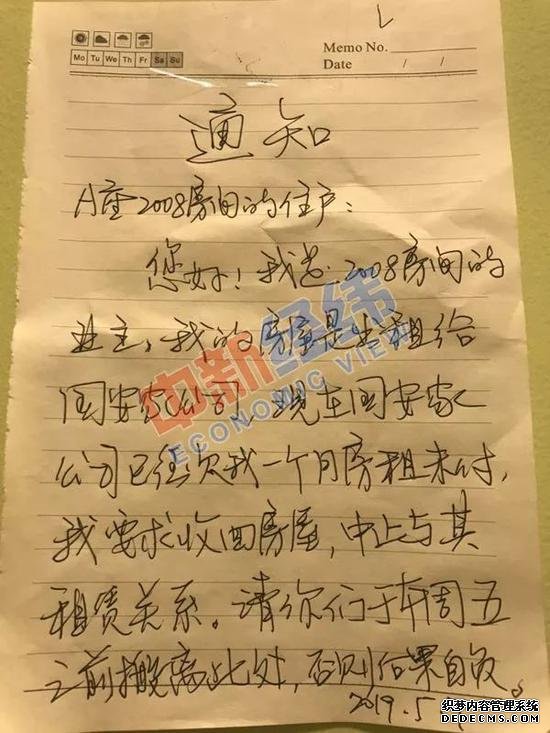 Memo No.
Mo Tu We Th Fr Sa Su
Date / /
通知
A座2008房间的住户：
您好！我是2008房间的
业主，我的房屋是出租给
国安家公司，现在国安家
公司已经欠我一个月房租未付，
我要求收回房屋，中止与其
租赁关系。请你们于本周五
之前搬离此处，否则后果自负。
2019.5
中新经纬
ECONOMIC VIEW
织梦内容管理系统
DEDECMS.COM